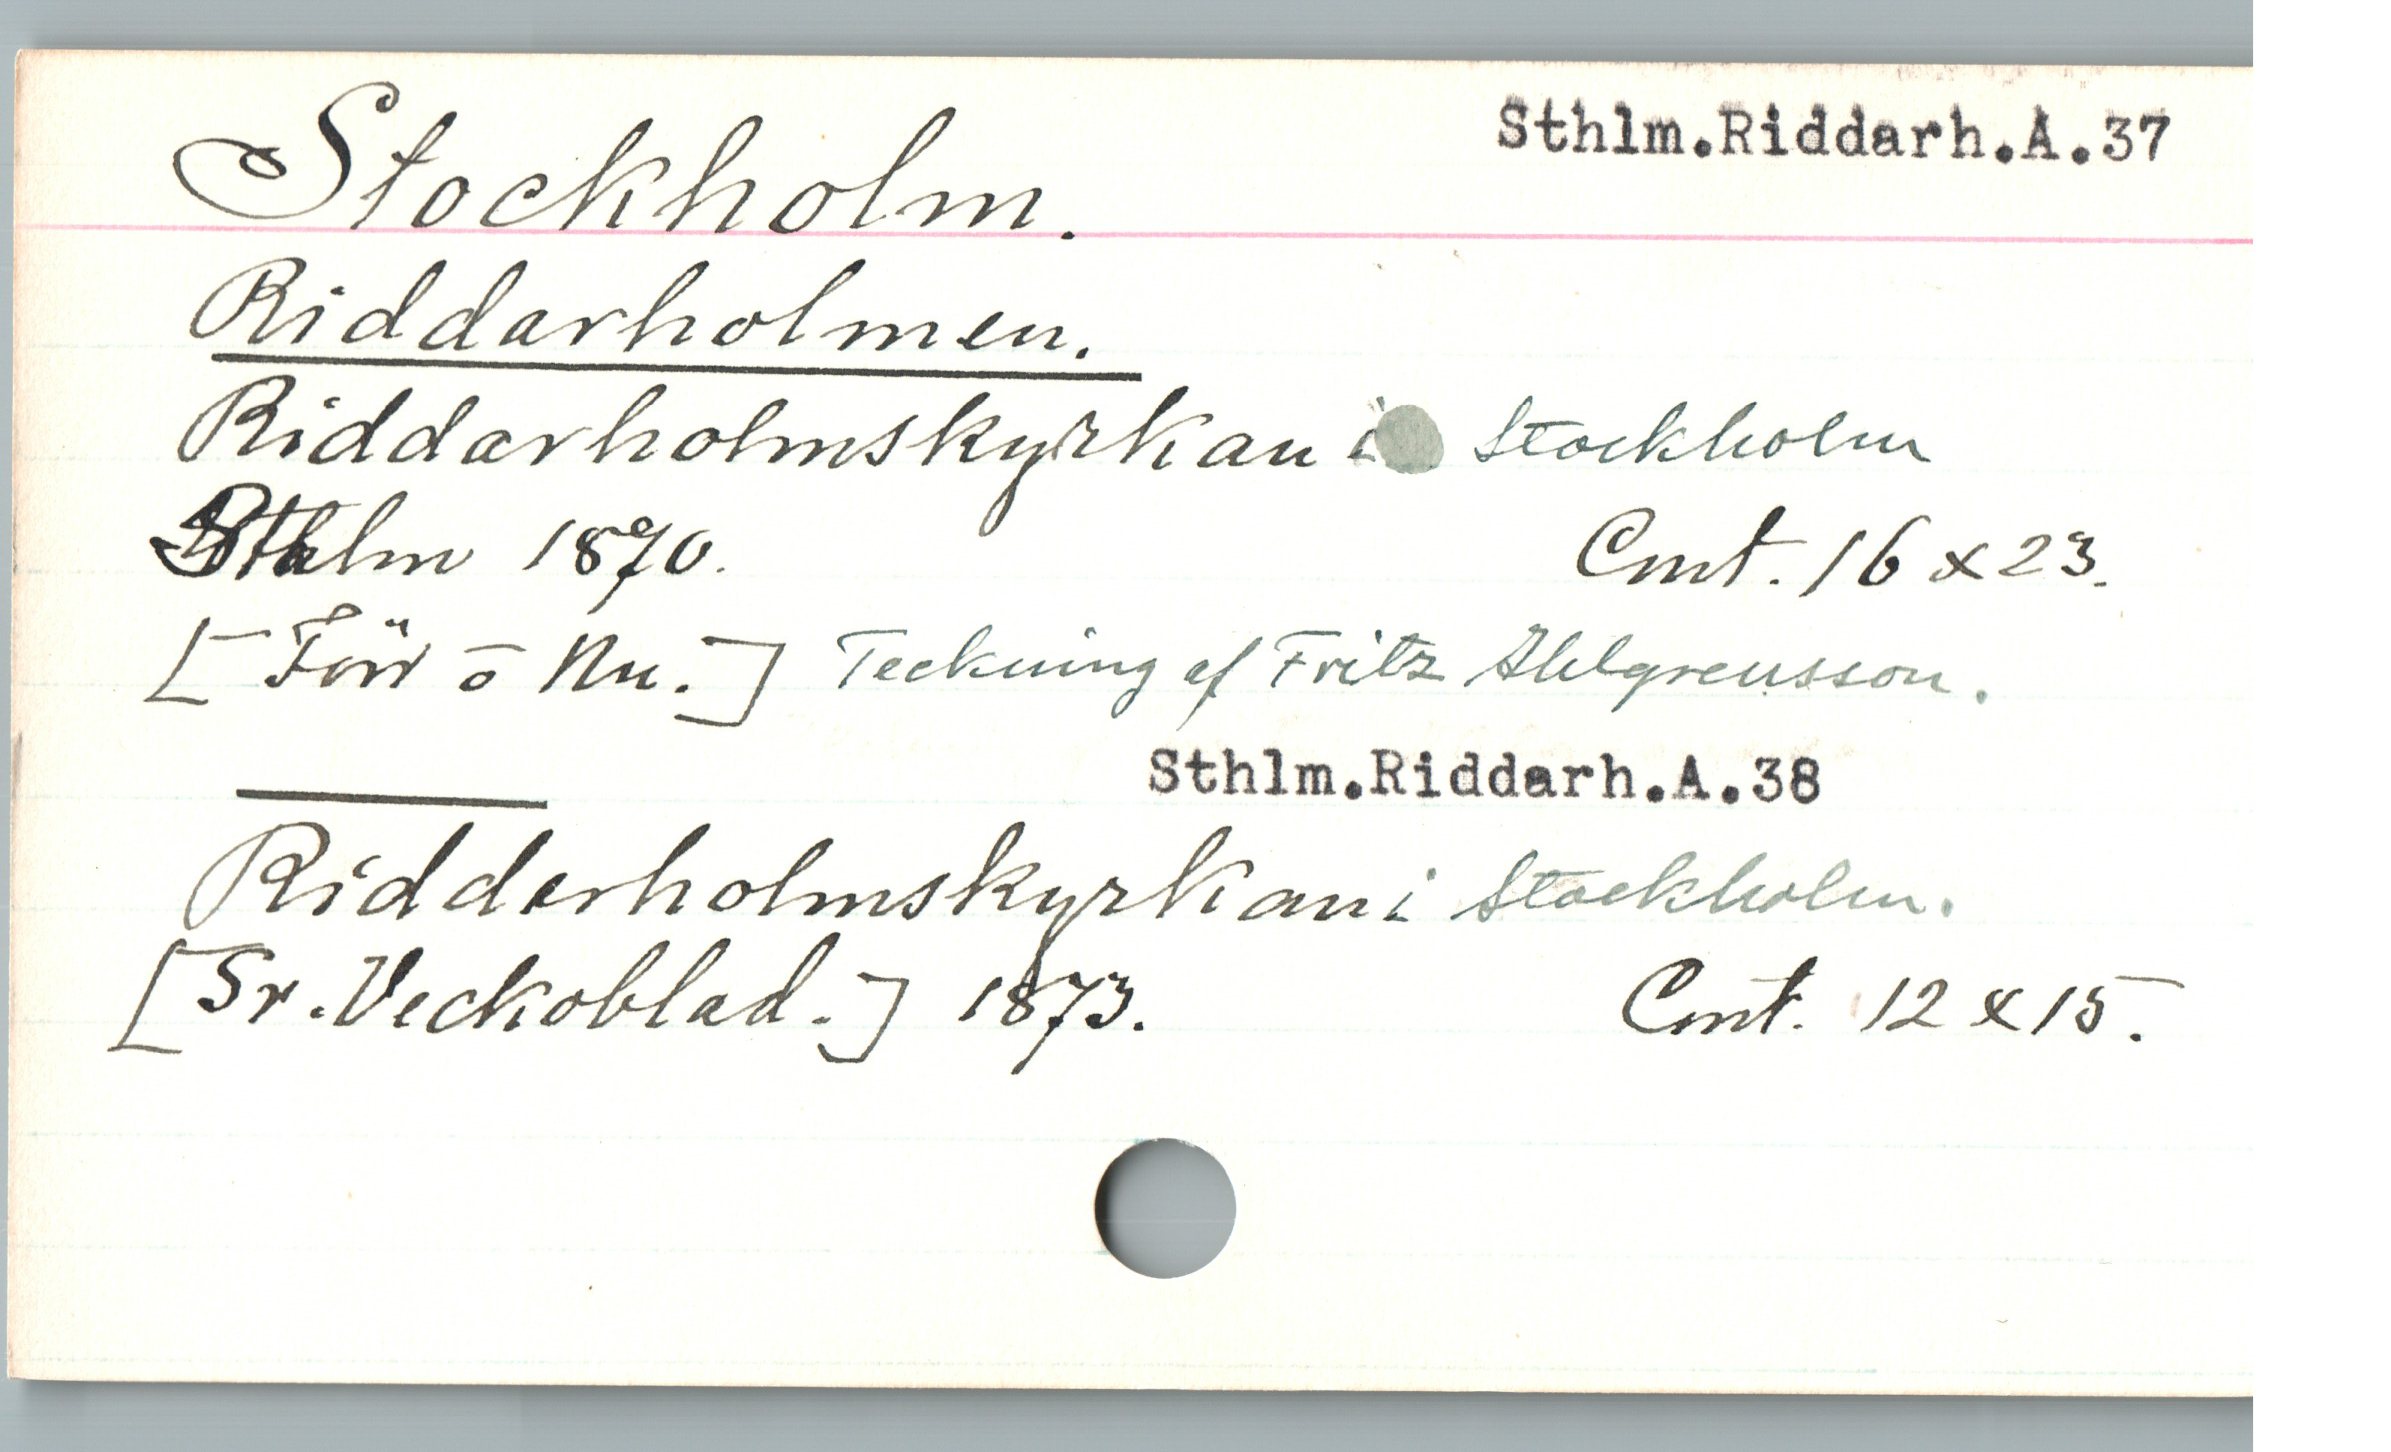 Stockholm. Sthlm.Riddarh.A.37
Riddarholmen.
Riddarholmskyrkan i Stockholm
Sthlm 1870. Cmt. 16 x 23.
[Förr o Nu.] Teckning af Fritz Ahlgrensson.
Sthlm.Riddarh.A.38
Ridderholmskyrkan i Stockholm.
[Sv. Veckoblad.] 1873. Cmt. 12 x 15.